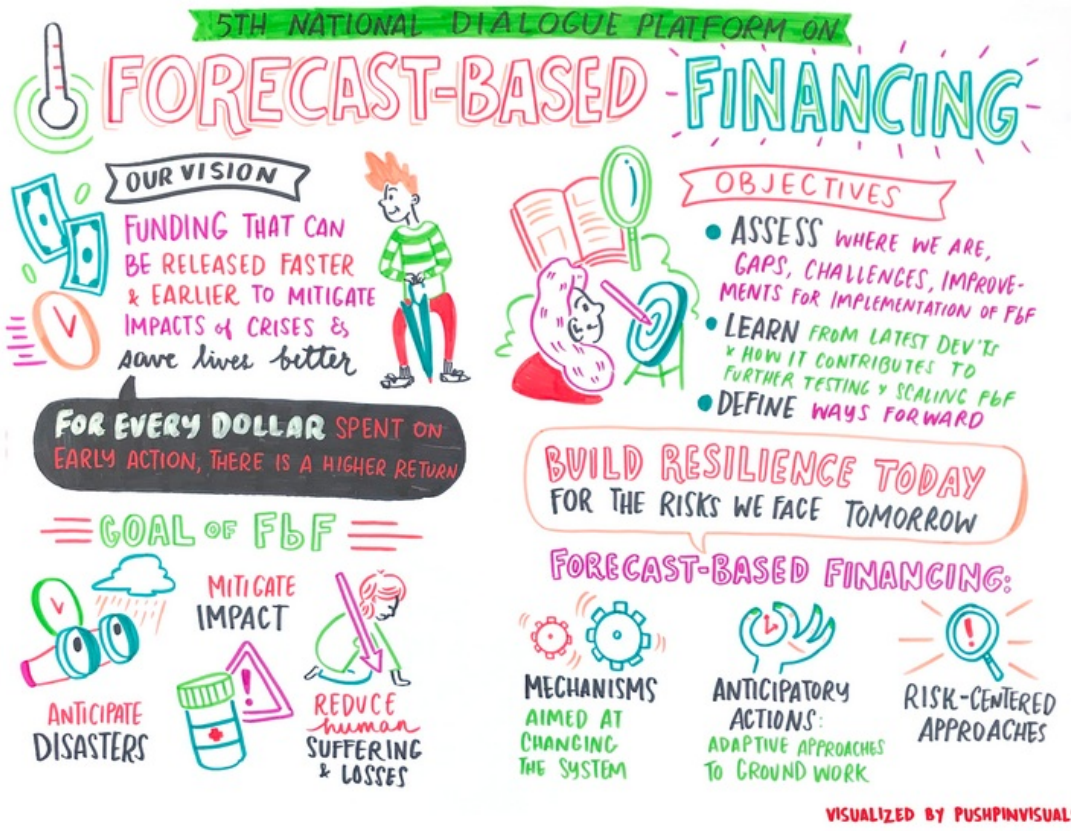 5TH NATIONAL DIALOGUE PLATFORM ON
FORECAST-BASED FINANCING
OUR VISION
FUNDING THAT CAN
BE RELEASED FASTER
& EARLIER TO MITIGATE
IMPACTS of CRISES &
save lives better
FOR EVERY DOLLAR SPENT ON
EARLY ACTION, THERE IS A HIGHER RETURN
GOAL OF FbF
ANTICIPATE
DISASTERS
MITIGATE
IMPACT
REDUCE
human
SUFFERING
& LOSSES
OBJECTIVES
• ASSESS WHERE WE ARE,
GAPS, CHALLENGES, IMPROVE-
MENTS FOR IMPLEMENTATION OF FbF
• LEARN FROM LATEST DEV'TS
& HOW IT CONTRIBUTES TO
FURTHER TESTING & SCALING FbF
• DEFINE WAYS FORWARD
BUILD RESILIENCE TODAY
FOR THE RISKS WE FACE TOMORROW
FORECAST-BASED FINANCING:
MECHANISMS
AIMED AT
CHANGING
THE SYSTEM
ANTICIPATORY
ACTIONS:
ADAPTIVE APPROACHES
TO GROUND WORK
RISK-CENTERED
APPROACHES
VISUALIZED BY PUSHPINVISUAL